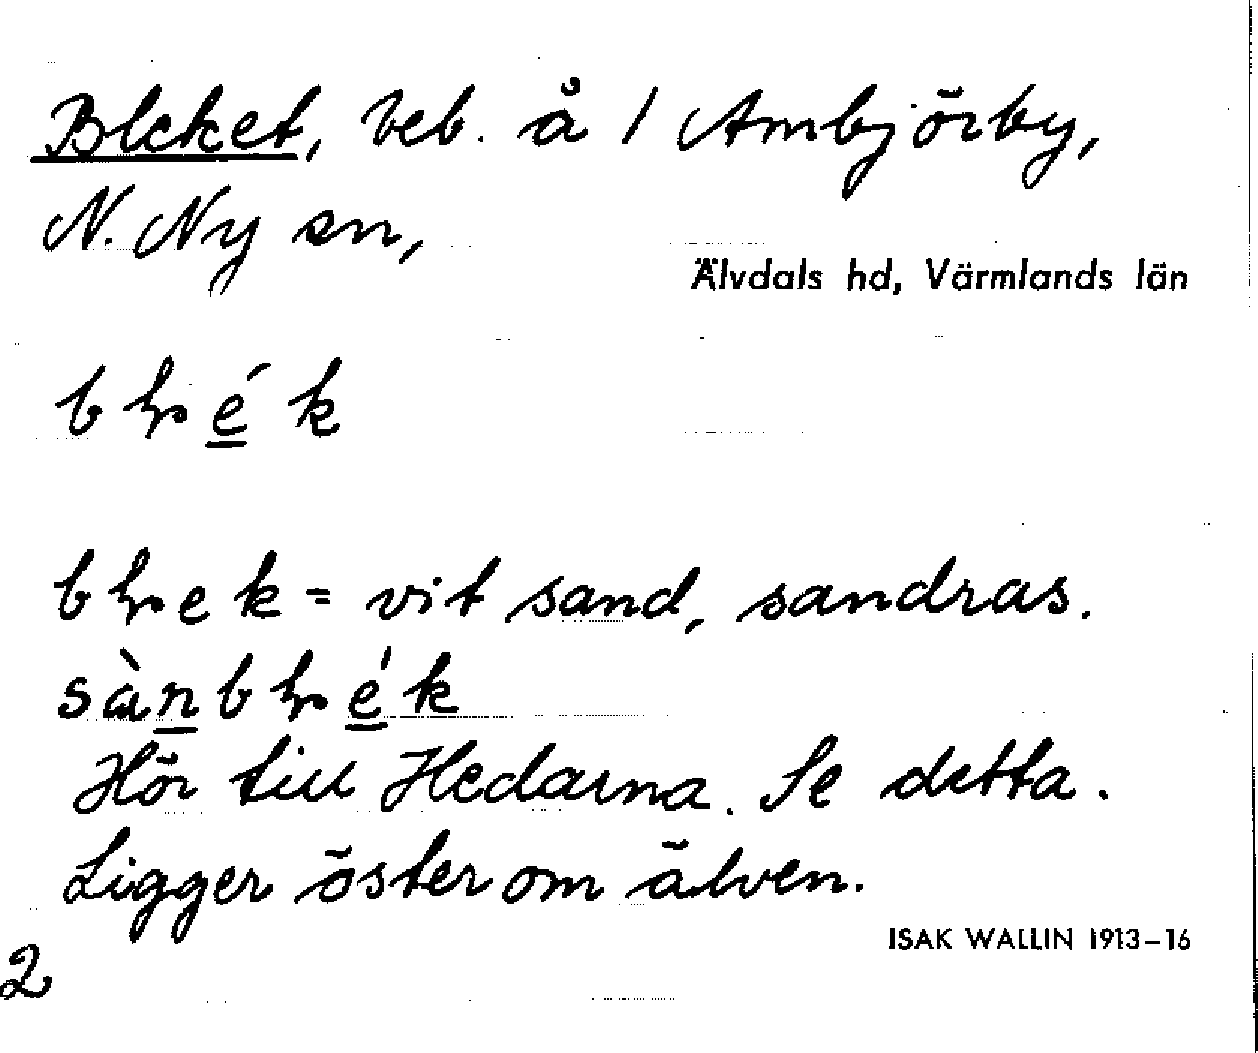 Bleket, beb. å 1 Ambjörby,
N. Ny sn,
Älvdals hd, Värmlands län
bļék
bļek = vit sand, sandras.
sànbļék
Hör till Hedarna. Se detta.
Ligger öster om älven.
ISAK WALLIN 1913–16
2